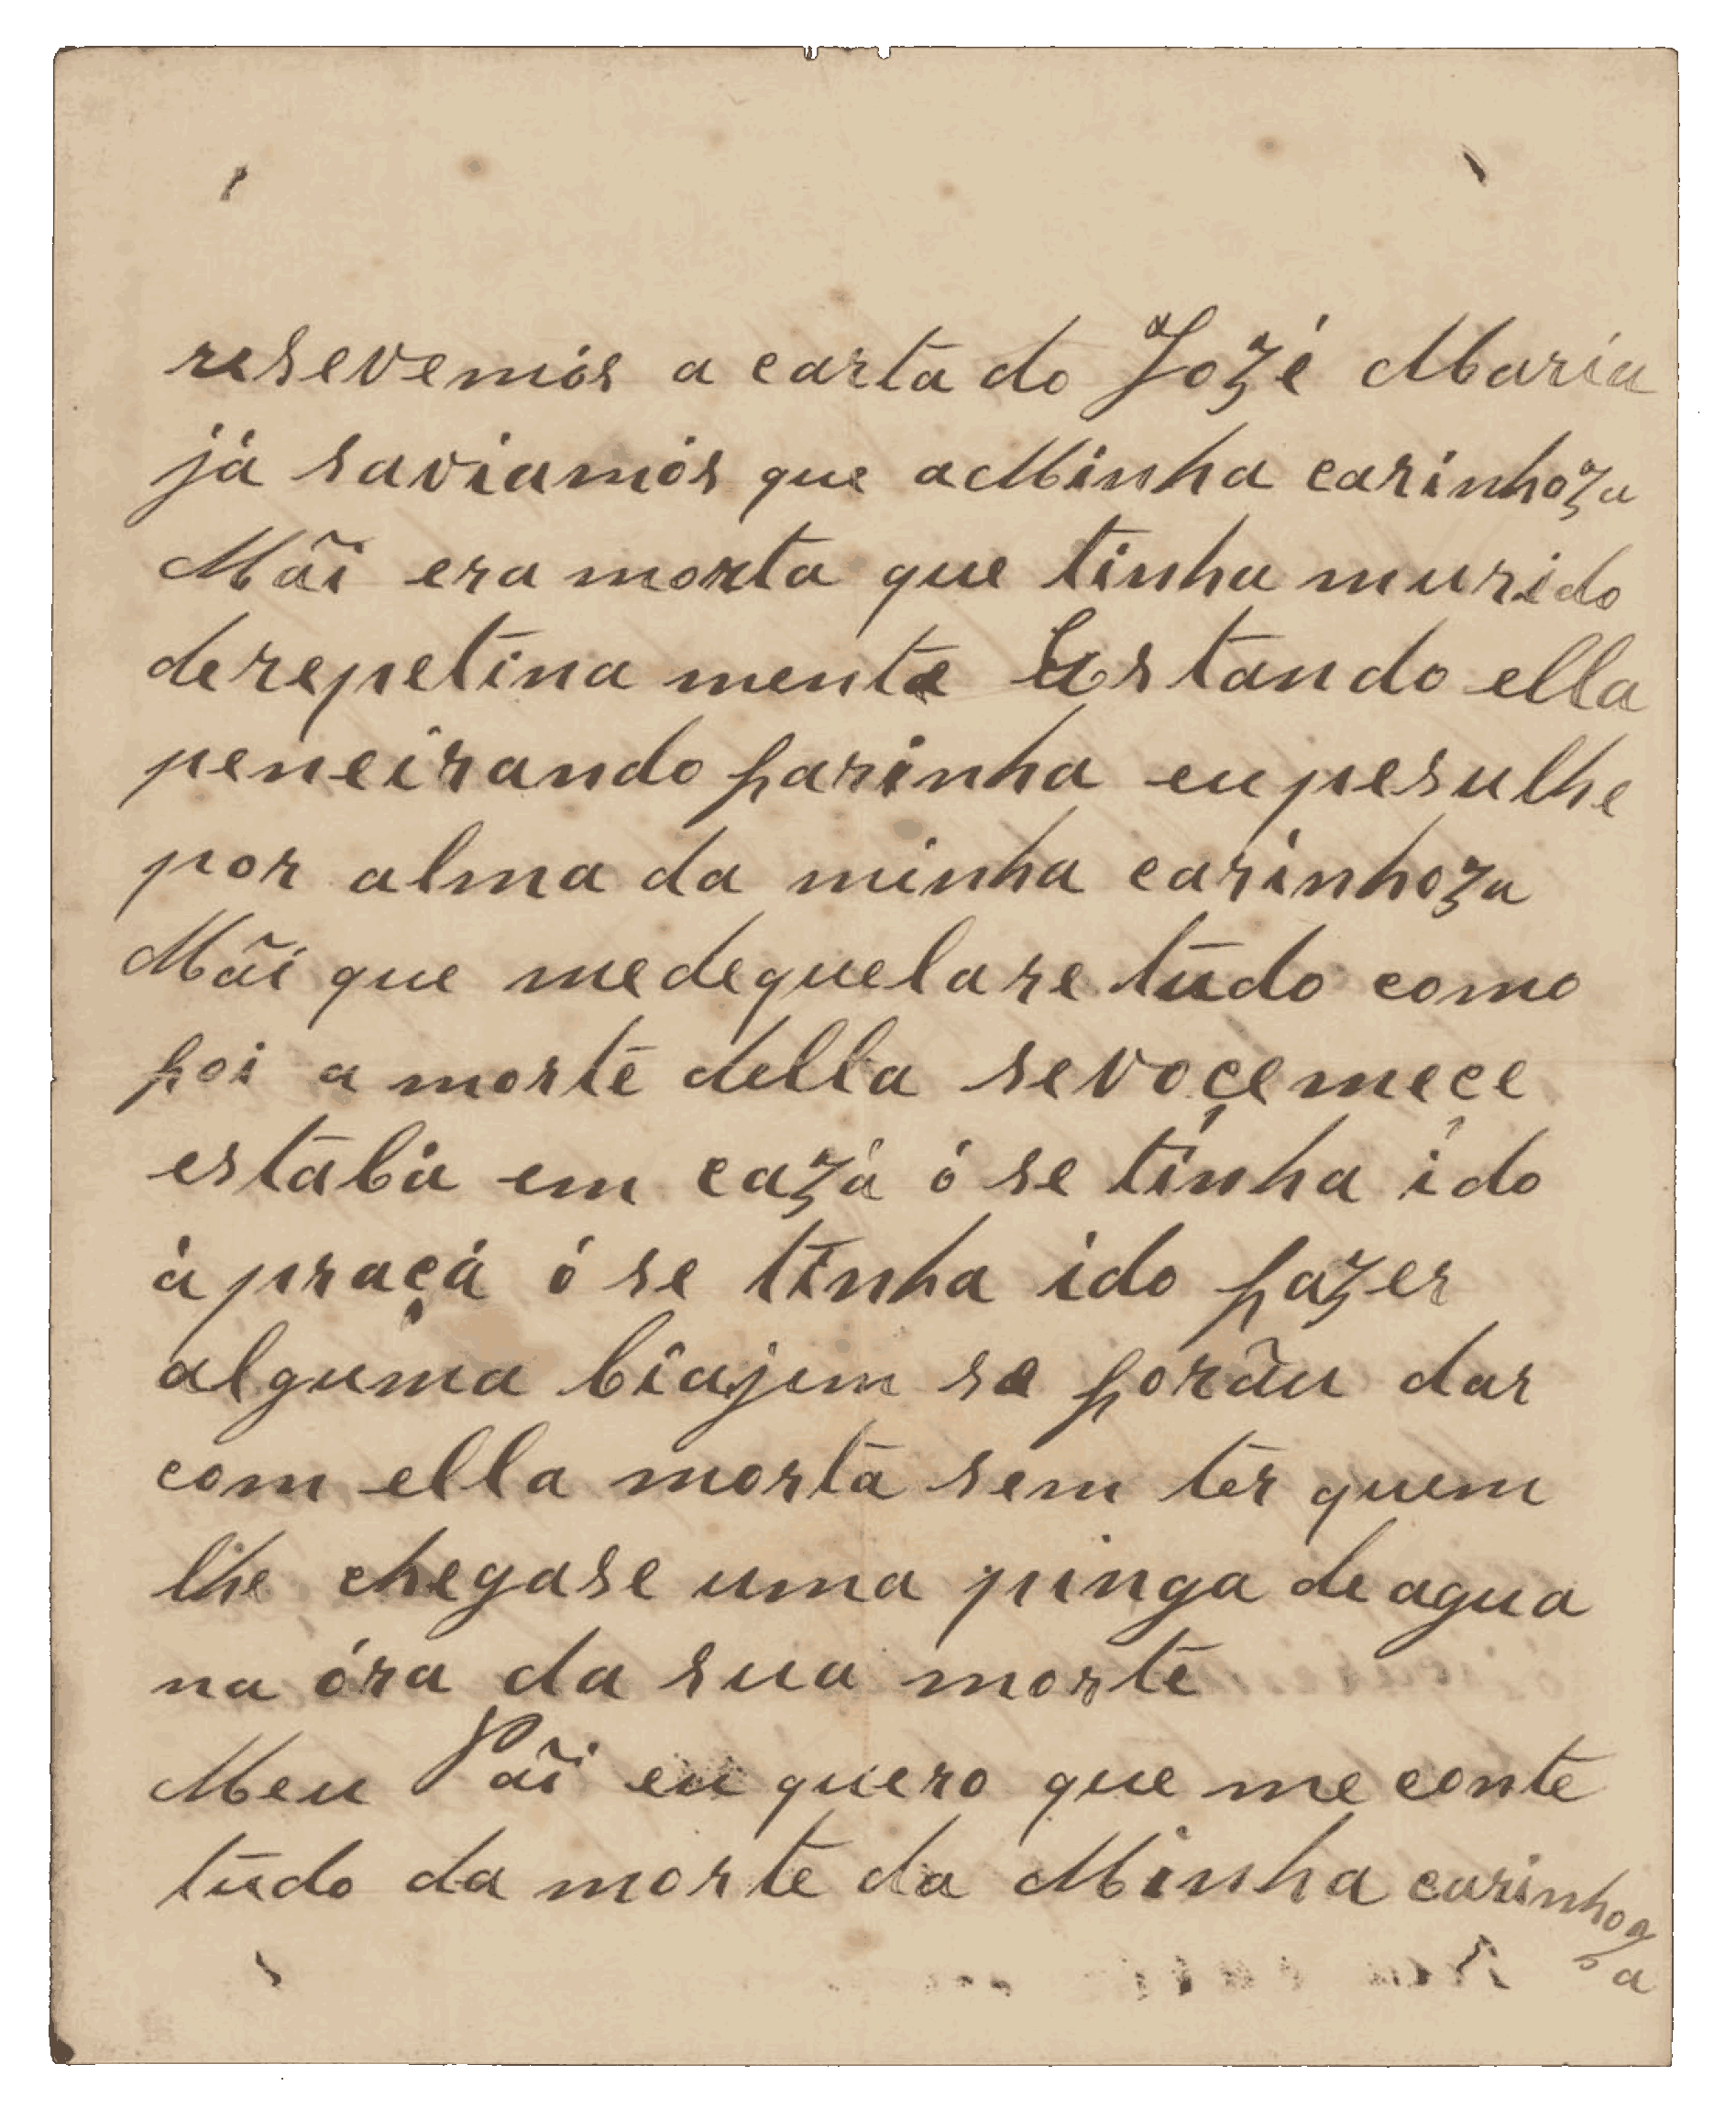 resevemós a carta do Jozé Maria
já saviamós que a Minha carinhoza
Mãi era morta que tinha murido
derepetina mente Estando ella
peneirando farinha eu pesulhe
por alma da minha carinhoza
Mãi que medequelare tudo como
foi a morte della sevoçemeçe
estabá em cazá ó se tinha ido
á praçá ó se tinha ido fazer
alguma biajem se forãu dar
com ella morta sem ter quem
lhe chegase uma pinga de agua
na óra da sua morte
Meu Pãi eu quero que me conte
tudo da morte da Minha carinhoza